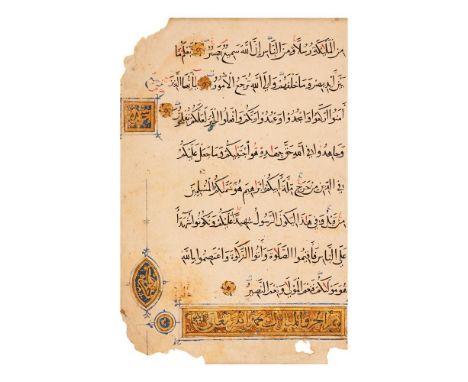 من الملئكة رسلا ومن الناس ان الله سميع بصير يعلم ما
بين ايديهم وما خلفهم والى الله ترجع الامور يا ايها الذين
امنوا اركعوا واسجدوا واعبدوا ربكم وافعلوا الخير لعلكم تفلحون
وجاهدوا في الله حق جهاده هو اجتبيكم وما جعل عليكم
في الدين من حرج ملة ابيكم ابرهيم هو سميكم المسلمين
من قبل وفي هذا ليكون الرسول شهيدا عليكم وتكونوا شهدا
على الناس فاقيموا الصلوة واتوا الزكوة واعتصموا بالله
هو موليكم فنعم المولى ونعم النصير